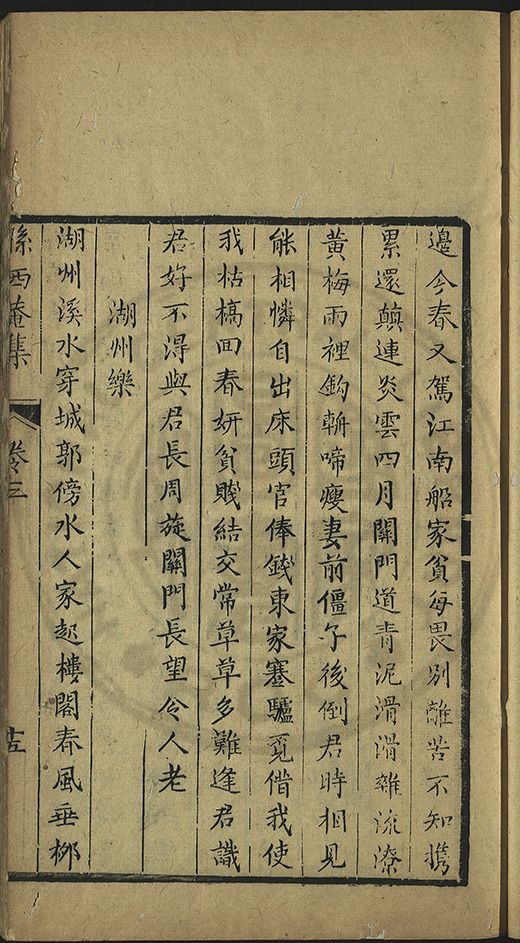 邊今春又駕江南船家貧每畏別離苦不知携
累還顛連炎雲四月關門道青泥滑滑雜流潦
黃梅雨裡鈎輈啼瘦妻前僵子後倒君時相見
能相憐自出床頭官俸錢東家蹇驢覓借我使
我枯槁回春妍貧賤結交常草草多難逢君識
君好不得與君長周旋關門長望令人老
湖州樂
湖州溪水穿城郭傍水人家起樓閣春風垂柳
孫西菴集 卷三 十五